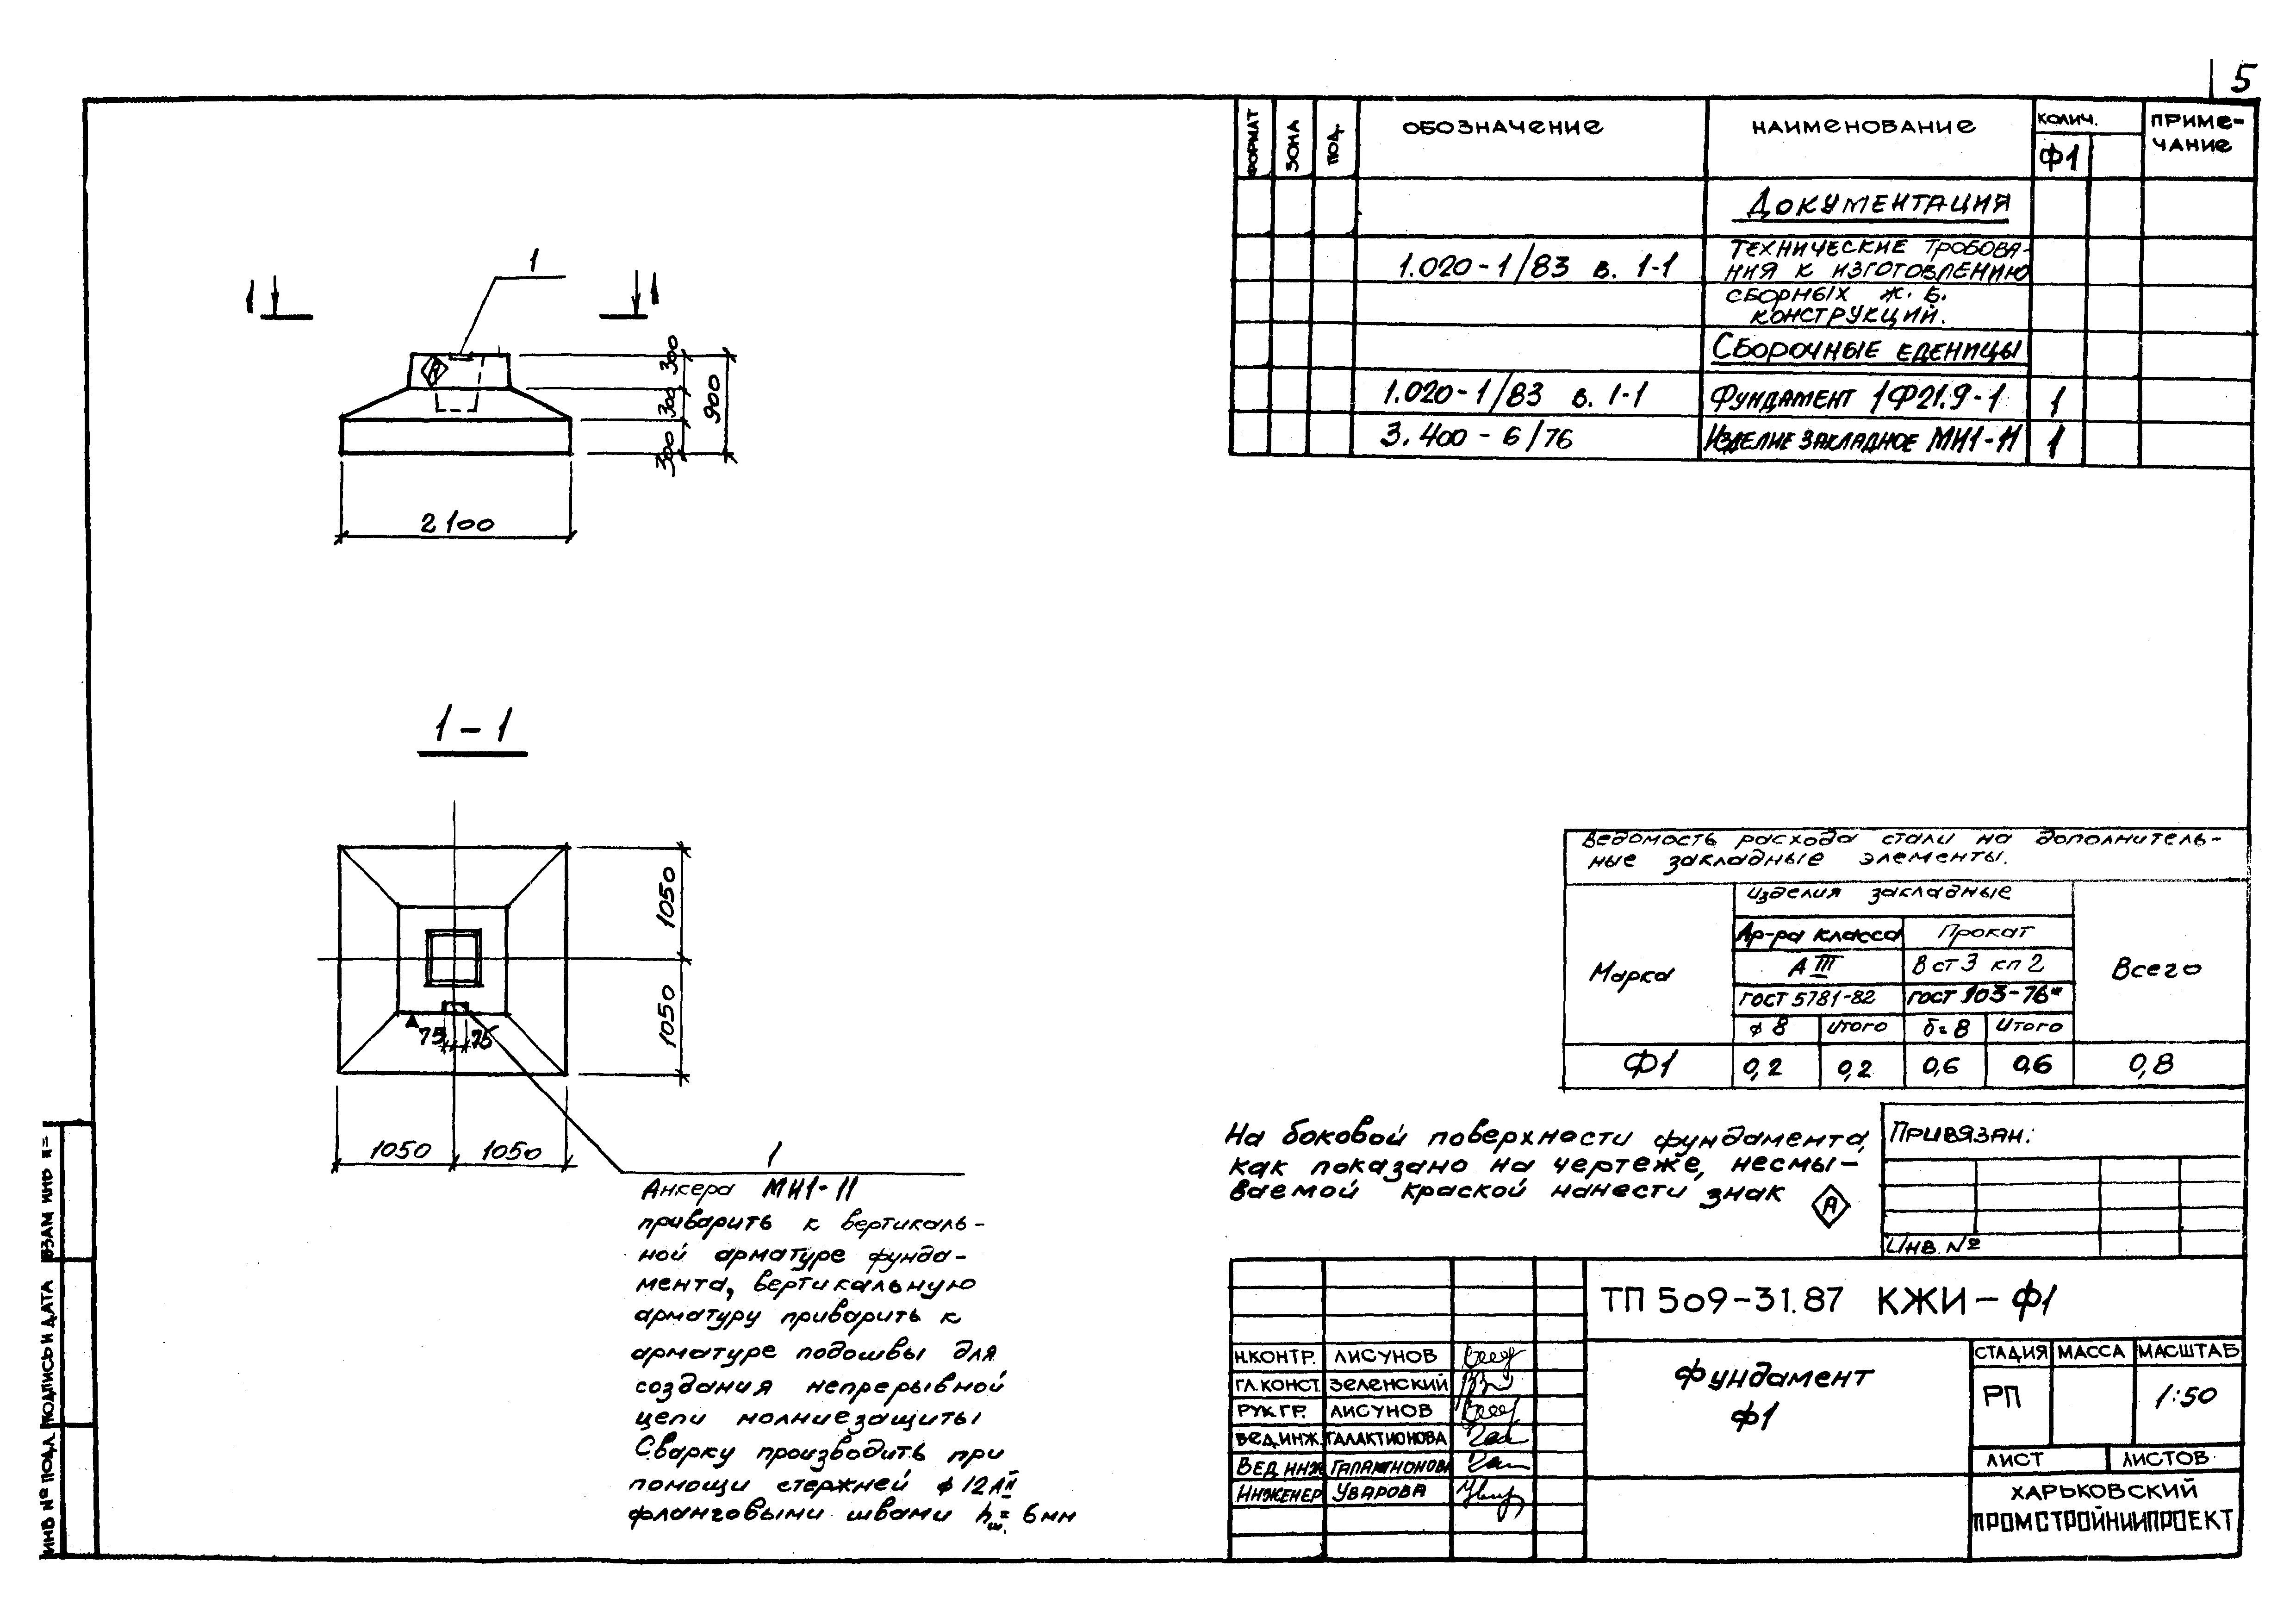 5
ФОРМАТ
ЗОНА
ПОД.
ОБОЗНАЧЕНИЕ
НАИМЕНОВАНИЕ
КОЛИЧ.
Ф1
ПРИМЕ-
ЧАНИЕ
ДОКУМЕНТАЦИЯ
1.020-1/83 в. 1-1
ТЕХНИЧЕСКИЕ ТРОБОВА-
НИЯ К ИЗГОТОВЛЕНИЮ
СБОРНЫХ Ж.Б.
КОНСТРУКЦИЙ.
СБОРОЧНЫЕ ЕДЕНИЦЫ
1.020-1/83 в. 1-1
ФУНДАМЕНТ 1Ф21.9-1
1
3.400-6/76
ИЗДЕЛИЕ ЗАКЛАДНОЕ МИ1-11
1
1
1
1
А
300
300
300
900
2100
1-1
1050
1050
75
75
1050
1050
1
Анкера МИ1-11
приварить к вертикаль-
ной арматуре фунда-
мента, вертикальную
арматуру приварить к
арматуре подошвы для
создания непрерывной
цепи молниезащиты
Сварку производить при
помощи стержней ф12
фланговыми швами hш.= 6мм
Ведомость расхода стали на дополнитель-
ные закладные элементы.
Марка
Изделия закладные
Всего
Ар-ра класса
Прокат
А III
В ст3 кп2
ГОСТ 5781-82
ГОСТ 103-76*
ф 8
Итого
δ=8
Итого
Ф1
0,2
0,2
0,6
0,6
0,8
На боковой поверхности фундамента,
как показано на чертеже, несмы-
ваемой краской нанести знак А
ПРИВЯЗАН:
ИНВ. №
ТП 509-31.87 КЖИ-Ф1
Н.КОНТР. ЛИСУНОВ
ГЛ.КОНСТ. ЗЕЛЕНСКИЙ
РУК.ГР. ЛИСУНОВ
ВЕД.ИНЖ. ГАЛАКТИОНОВА
ВЕД.ИНЖ ГАЛАКТИОНОВА
ИНЖЕНЕР УВАРОВА
Фундамент
Ф1
СТАДИЯ
МАССА
МАСШТАБ
РП
1:50
ЛИСТ
ЛИСТОВ
ХАРЬКОВСКИЙ
ПРОМСТРОЙНИИПРОЕКТ
ВЗАМ ИНВ №
ПОДПИСЬ И ДАТА
ИНВ № ПОДЛ